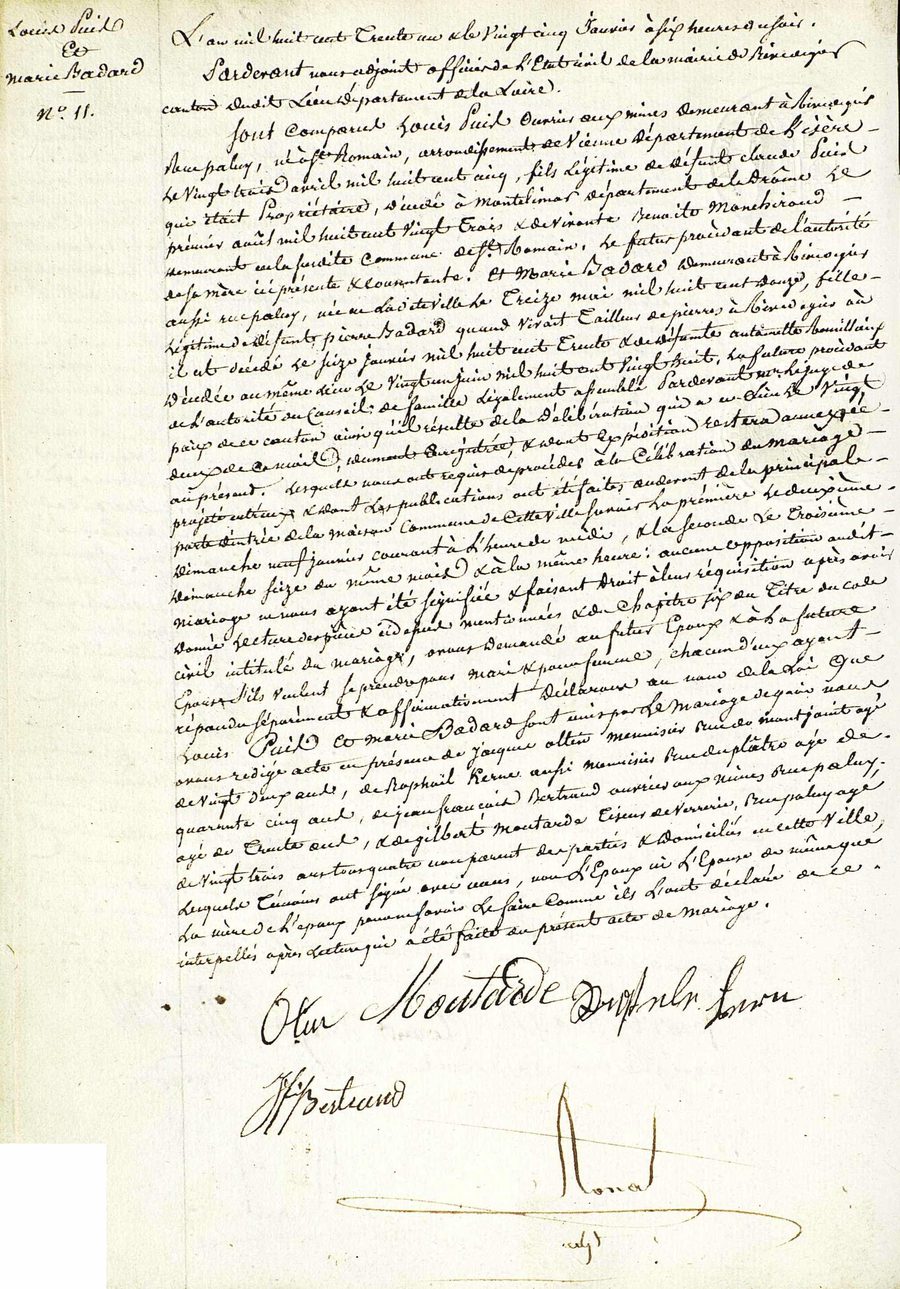 Louis Puis
Et
Marie Badard
N.º 11.
L'an mil huit cent Trente un & le Vingt cinq Janvier à six heures du soir.
Pardevant nous adjoint officier de l'Etat civil de la mairie de Rivedegier
canton dudit Lieu département de la Loire.
Sont comparus Louis Puis Ouvrier aux mines demeurant à Rivedegier
Rue paluy, né à St. Romain, arrondissement de Vienne département de l'isère
Le Vingt trois avril mil huit cent cinq, fils Légitime de défunt claude Puis
qui était Propriétaire, décédé à Montelimar département de la Drôme Le
prémier août mil huit cent Vingt Trois & de vivante Benoite Monchiroud
demeurant en la susdite Commune de St. Romain. Le futur procédant de l'autorité
de sa mère ici présente & consentante. Et Marie Badard demeurant à Rivedegier
aussi rue paluy, née en La dite ville Le Treize mai mil huit cent douze, fille
Légitime de défunt pierre Badard quand vivait Tailleur de pierres à Rivedegier où
il est décédé Le seize janvier mil huit cent Trente & de défunte antoinette
décédée au même lieu Le Vingt un juin mil huit cent Vingt huit. La future procédant
de l'autorité du Conseil de famille Légalement assemblé Pardevant Mr Le juge de
paix de ce canton ainsi qu'il résulte de la Délibération qui a eu Lieu Le Vingt
deux de ce mois, dument Enrégistrée, & dont Expédition restera annexée
au présent. Lesquels nous ont requis de procéder à la Célébration du mariage
projeté entr'eux & dont Les publications ont été faites audevant de la principale
porte d'entrée de la maison Commune de Cette Ville savoir La première Le deuxième
Dimanche neuf janvier courant à L'heure de midi, & la seconde Le Troisième
Dimanche seize du même mois & à la même heure: aucune opposition audit
mariage ne nous ayant été signifiée & faisant Droit à leur réquisition après avoir
donné Lecture des pièces ci dessus mentionnées & du Chapitre six du Titre du code
civil intitulé du mariage, avons demandé au futur Epoux & à La future
Epouse s'ils veulent se prendre pour mari & pour femme, chacun d'eux ayant
répondu séparément & affirmativement Déclarons au nom de la Loi Que
Louis Puis Et Marie Badard sont unis par Le Mariage de quoi nous
avons rédigé acte en présence de Jacque olten Menuisier Rue du montjoint agé
de Vingt deux ans, de Raphaël Kerne aussi menuisier Rue du plâtre agé de
quarante cinq ans, de jean françois Bertrand ouvrier aux mines Rue paluy
agé de Trente ans, & de gilbert Moutarde Tiseur de Verrerie, Rue paluy agé
de Vingt trois ans tous quatre non parent des parties & domiciliés en cette Ville,
Lesquels Témoins ont signé avec nous, non l'Epoux ni L'Epouse de même que
La mère de l'époux pour ne savoir Le faire Comme ils L'ont déclaré de ce
interpellés après Lecture qui a été faite du présent acte de Mariage.
Moutarde
Bertrand
adjt